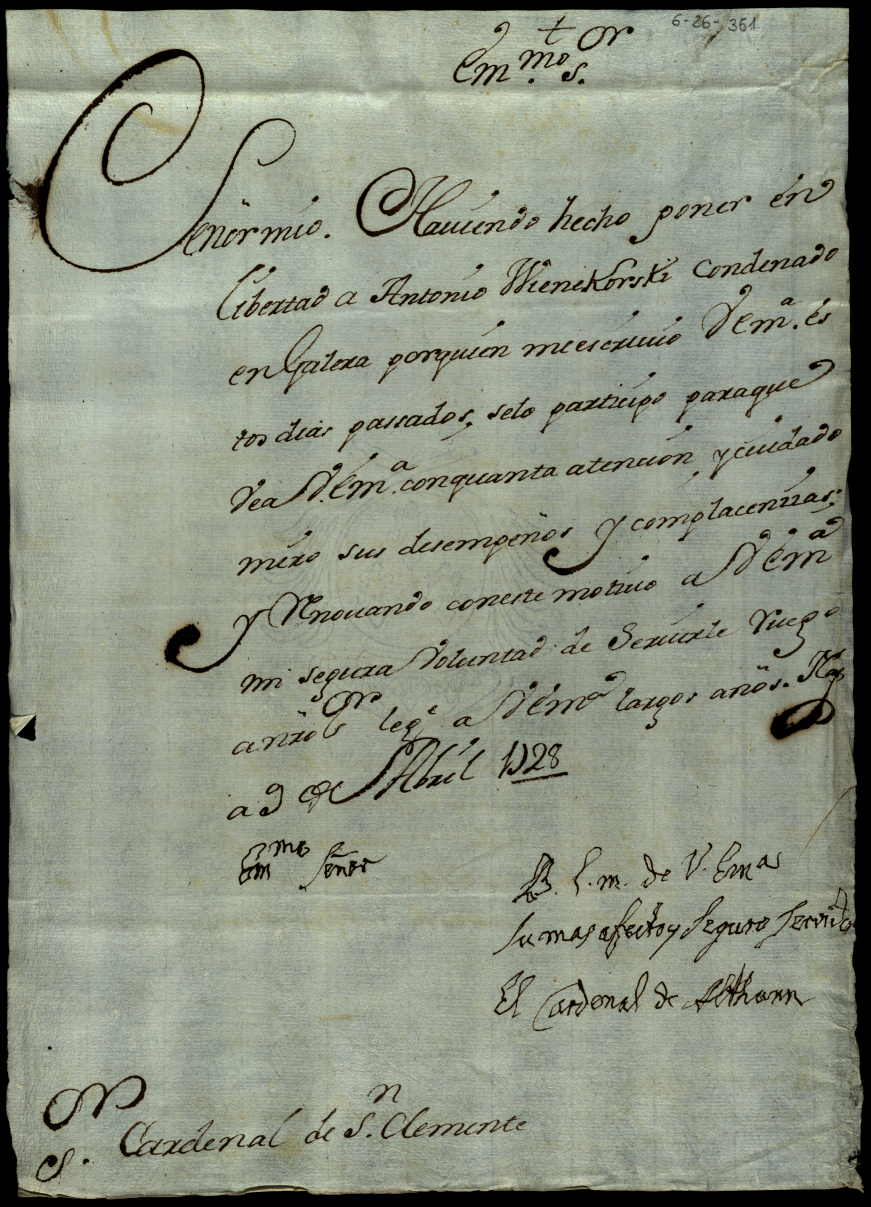 6-26-361
†
Em.mo S.or
Señor mio. Haviendo hecho poner én
libertad a Antonio Wienekorski condenado
en Galera porquien meescrivio V Em.a és
tos dias passados, selo participo paraque
vea V. Em.a conquanta atencion, y cuidado
miro sus desempeños y complacenzias;
y renovando coneste motivo a V Em.a
mi segura voluntad de Servirle ruego
a nro S.or le g.e a V Em.a largos años. Nap.s
a 9 de Abril 1728
Em.mo Señor
B. l. m. de V. Em.a
su mas afecto y seguro servi.or
El Cardenal de Althann
S.or Cardenal de S.n Clemente